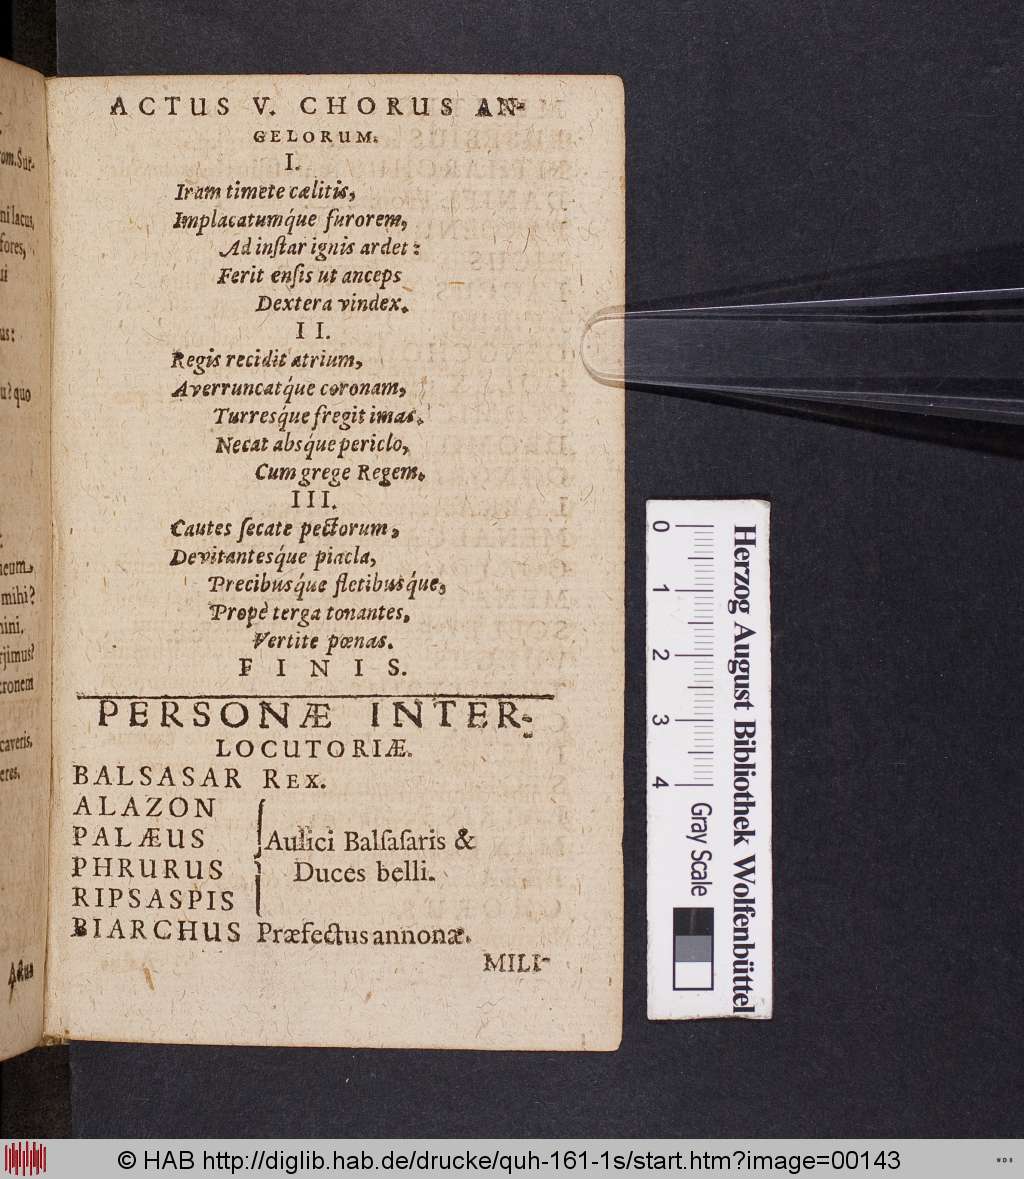 ACTUS V. CHORUS AN-
GELORUM.
I.
Iram timete cælitis,
Implacatumq́ue furorem,
Ad inſtar ignis ardet:
Ferit enſis ut anceps
Dextera vindex.
II.
Regis recidit atrium,
Averruncatq́ue coronam,
Turresq́ue fregit imas.
Necat absq́ue periclo,
Cum grege Regem.
III.
Cautes ſecate pectorum,
Devitantesq́ue piacla,
Precibusq́ue fletibusq́ue,
Propè terga tonantes,
Vertite pœnas.
FINIS.
PERSONÆ INTER-
LOCUTORIÆ.
BALSASAR REX.
ALAZON
PALÆUS
PHRURUS
RIPSASPIS
Aulici Balſaſaris &
Duces belli.
BIARCHUS Præfectus annonæ.
MILI-
om. Sur-
ni lacus,
fores,
ui
us:
u? quo
ieum,
mihi?
nini.
rjimus?
cronem
caveris.
eres.
Actus
0 1 2 3 4
Herzog August Bibliothek Wolfenbüttel
Gray Scale
© HAB http://diglib.hab.de/drucke/quh-161-1s/start.htm?image=00143